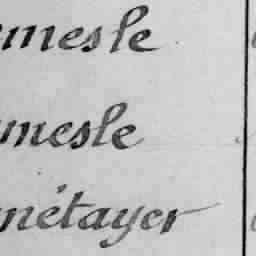 mesle
mesle
métayer